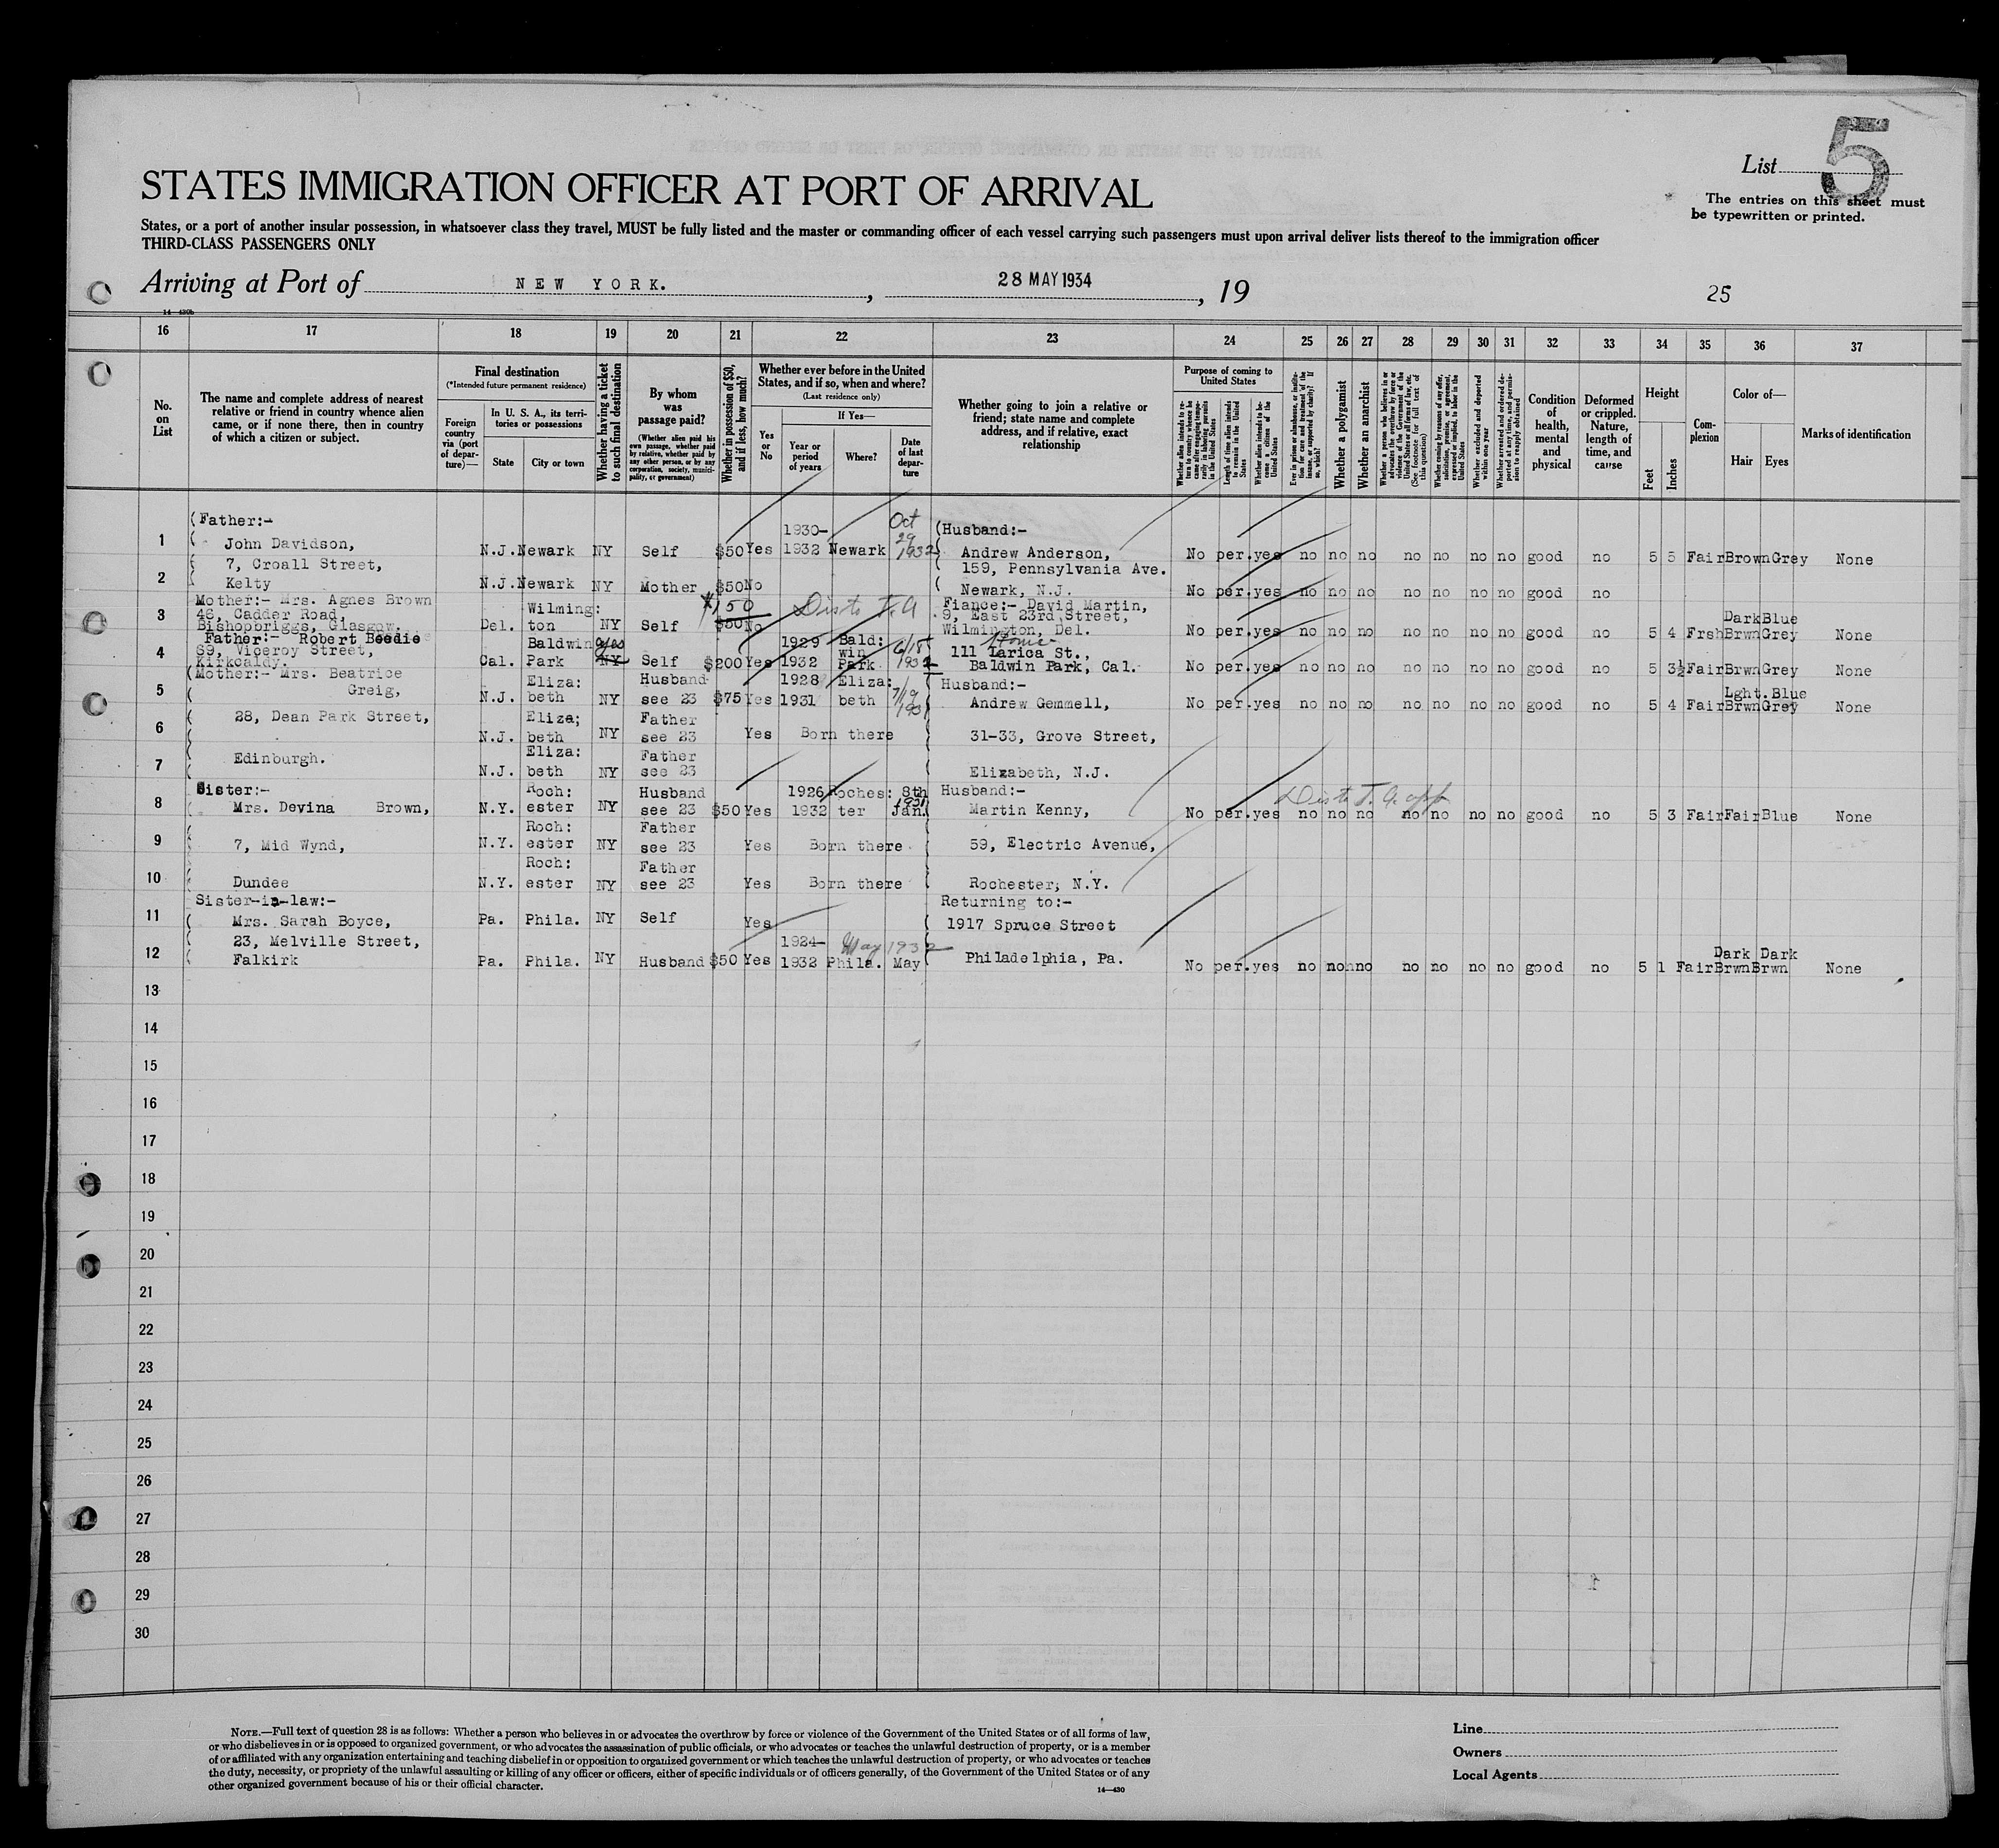 List 5
The entries on this sheet must
be typewritten or printed.
STATES IMMIGRATION OFFICER AT PORT OF ARRIVAL
States, or a port of another insular possession, in whatsoever class they travel, MUST be fully listed and the master or commanding officer of each vessel carrying such passengers must upon arrival deliver lists thereof to the immigration officer
THIRD-CLASS PASSENGERS ONLY
Arriving at Port of NEW YORK. , 28 MAY 1934 , 19
25
16 17 18 19 20 21 22 23 24 25 26 27 28 29 30 31 32 33 34 35 36 37
No. on List
The name and complete address of nearest
relative or friend in country whence alien
came, or if none there, then in country
of which a citizen or subject.
Final destination
(*Intended future permanent residence)
Foreign country via (port of departure)—
In U. S. A., its territories or possessions
State
City or town
Whether having a ticket to such final destination
By whom was passage paid?
(Whether alien paid his own passage, whether paid by relative, whether paid by any other person, or by any corporation, society, municipality, or government)
Whether in possession of $50, and if less, how much?
Whether ever before in the United
States, and if so, when and where?
(Last residence only)
Yes or No
If Yes—
Year or period of years
Where?
Date of last departure
Whether going to join a relative or
friend; state name and complete
address, and if relative, exact
relationship
Purpose of coming to United States
Length of time alien intends to remain in the United States
Whether alien intends to become a citizen of the United States
Whether a polygamist
Whether an anarchist
Condition of health, mental and physical
Deformed or crippled. Nature, length of time, and cause
Height
Feet
Inches
Complexion
Color of—
Hair
Eyes
Marks of identification
1 (Father:- John Davidson, N.J. Newark NY Self $50 Yes 1930-1932 Newark Oct 29 1932 (Husband:- Andrew Anderson, No per. yes no no no no no no no good no 5 5 Fair Brown Grey None
7, Croall Street, 159, Pennsylvania Ave.
2 Kelty N.J. Newark NY Mother $50 No Newark, N.J. No per. yes no no no no no no no good no
3 Mother:- Mrs. Agnes Brown 46, Cadder Road, Bishopbriggs, Glasgow. Del. Wilming: ton NY Self $50 $150 No Fiance:- David Martin, 9, East 23rd Street, Wilmington, Del. No per. yes no no no no no no no good no 5 4 Frsh Dark Brwn Blue Grey None
4 Father:- Robert Beedie 89, Viceroy Street, Kirkcaldy. Cal. Baldwin Park NY yes Self $200 Yes 1929 1932 Bald: win Park 6/18 1932 Home 111 Larica St., Baldwin Park, Cal. No per. yes no no no no no no no good no 5 3½ Fair Brwn Grey None
5 (Mother:- Mrs. Beatrice Greig, N.J. Eliza: beth NY Husband see 23 $75 Yes 1928 1931 Eliza: beth 7/19 1931 Husband:- Andrew Gemmell, No per. yes no no no no no no no good no 5 4 Fair Lght. Brwn Blue Grey None
6 28, Dean Park Street, N.J. Eliza; beth NY Father see 23 Yes Born there 31-33, Grove Street,
7 Edinburgh. N.J. Eliza: beth NY Father see 23 Elizabeth, N.J.
8 Sister:- Mrs. Devina Brown, N.Y. Roch: ester NY Husband see 23 $50 Yes 1926 1932 Roches: ter 8th Jan. Husband:- Martin Kenny, No per. yes no no no no no no no good no 5 3 Fair Fair Blue None
9 7, Mid Wynd, N.Y. Roch: ester NY Father see 23 Yes Born there 59, Electric Avenue,
10 Dundee N.Y. Roch: ester NY Father see 23 Yes Born there Rochester, N.Y.
11 Sister-in-law:- Mrs. Sarah Boyce, Pa. Phila. NY Self Yes Returning to:- 1917 Spruce Street
12 23, Melville Street, Falkirk Pa. Phila. NY Husband $50 Yes 1924-1932 Phila. May May 1932 Philadelphia, Pa. No per. yes no no no no no no no good no 5 1 Fair Dark Brwn Dark Brwn None
13
14
15
16
17
18
19
20
21
22
23
24
25
26
27
28
29
30
NOTE.—Full text of question 28 is as follows: Whether a person who believes in or advocates the overthrow by force or violence of the Government of the United States or of all forms of law,
or who disbelieves in or is opposed to organized government, or who advocates the assassination of public officials, or who advocates or teaches the unlawful destruction of property, or is a member
of or affiliated with any organization entertaining and teaching disbelief in or opposition to organized government or which teaches the unlawful destruction of property, or who advocates or teaches
the duty, necessity, or propriety of the unlawful assaulting or killing of any officer or officers, either of specific individuals or of officers generally, of the Government of the United States or of any
other organized government because of his or their official character.
14—430
Line
Owners
Local Agents